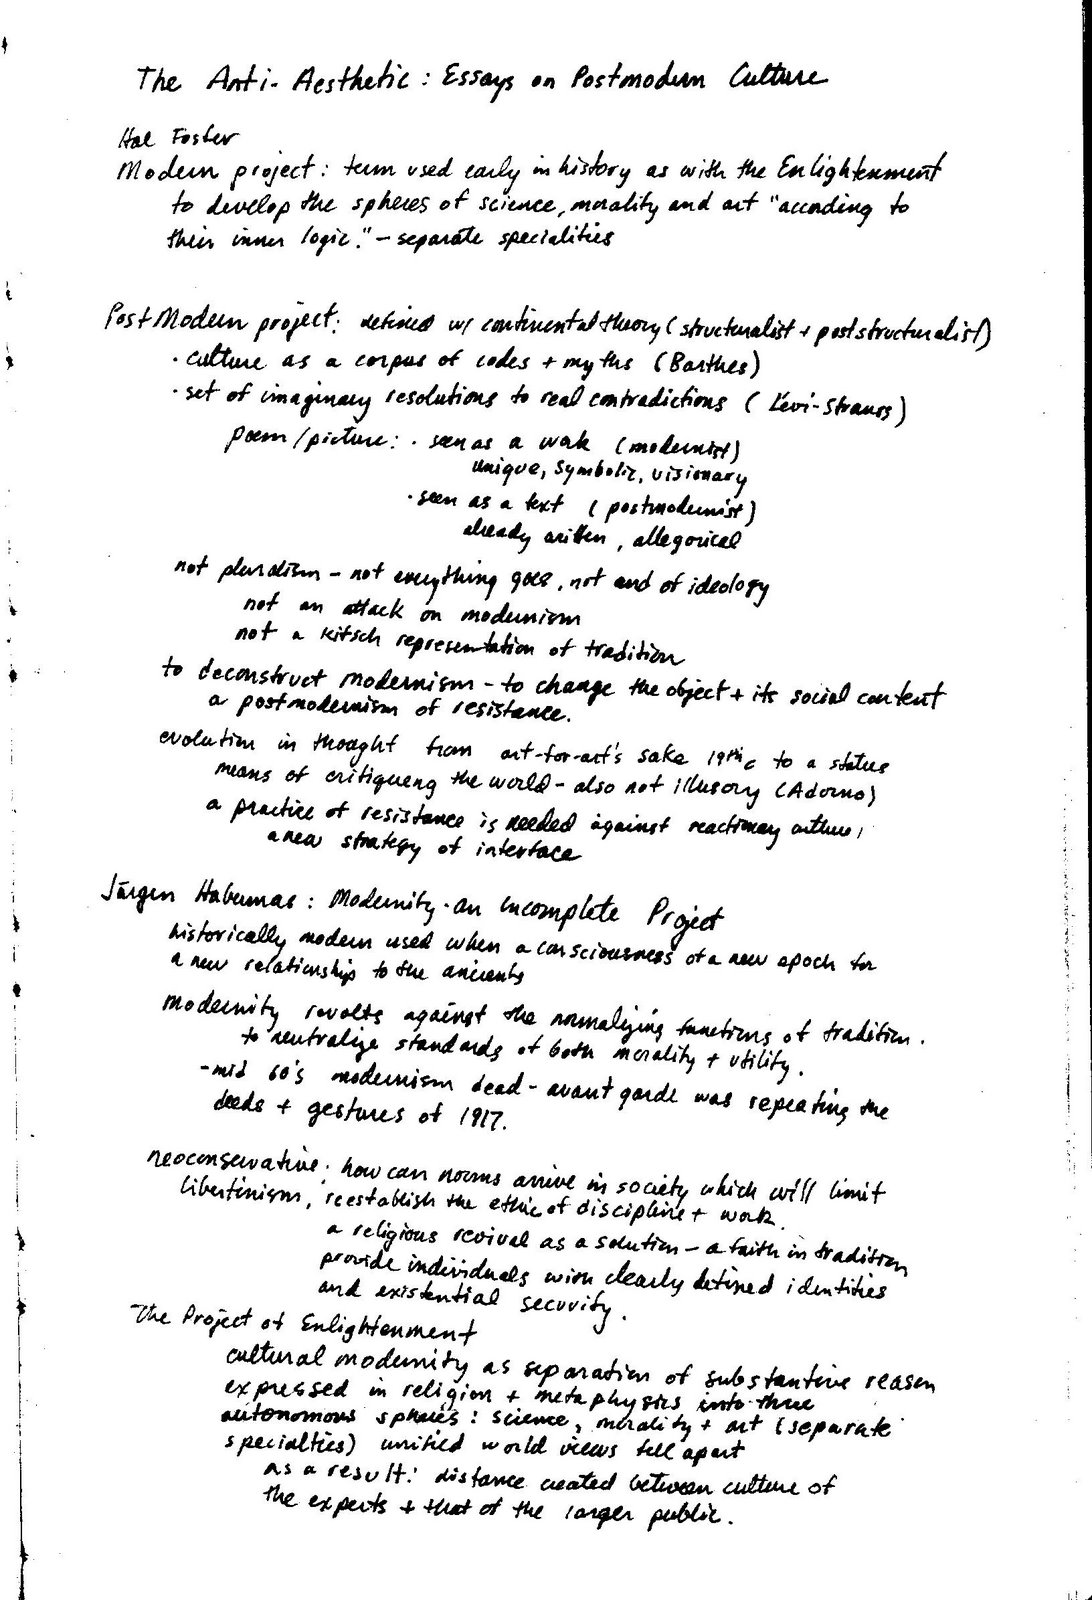 The Anti-Aesthetic: Essays on Postmodern Culture
Hal Foster
Modern project: term used early in history as with the Enlightenment
to develop the spheres of science, morality and art "according to
their inner logic." - separate specialities
Post Modern project: defined w/ continental theory (structuralist + poststructuralist)
· culture as a corpus of codes + myths (Barthes)
· set of imaginary resolutions to real contradictions (Levi-Strauss)
poem/picture: · seen as a work (modernist)
unique, symbolic, visionary
· seen as a text (postmodernist)
already written, allegorical
not pluralism - not everything goes, not end of ideology
not an attack on modernism
not a kitsch representation of tradition
to deconstruct modernism - to change the object + its social context
a postmodernism of resistance.
evolution in thought from art-for-art's sake 19th c to a status
means of critiqueng the world - also not illusory (Adorno)
a practice of resistance is needed against reactionary culture,
a new strategy of interface
Jürgen Habermas: Modernity - an incomplete Project
historically modern used when a consciousness of a new epoch for
a new relationship to the ancients
Modernity revolts against the normalizing functions of tradition.
to neutralize standards of both morality + utility.
- mid 60's modernism dead - avant garde was repeating the
deeds + gestures of 1917.
neoconservative: how can norms arrive in society which will limit
libertinism, reestablish the ethic of discipline + work.
a religious revival as a solution - a faith in tradition
provide individuals with clearly defined identities
and existential security.
The Project of Enlightenment
cultural modernity as separation of substantive reason
expressed in religion + metaphysics into three
autonomous spheres: science, morality + art (separate
specialties) unified world views fell apart
as a result: distance created between culture of
the experts + that of the larger public.